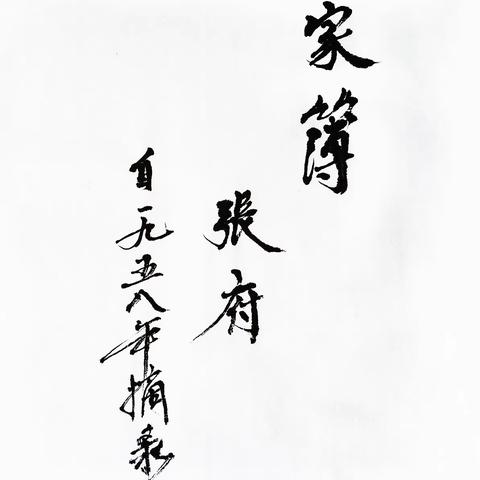 家簿
張府
自一九五八年摘录